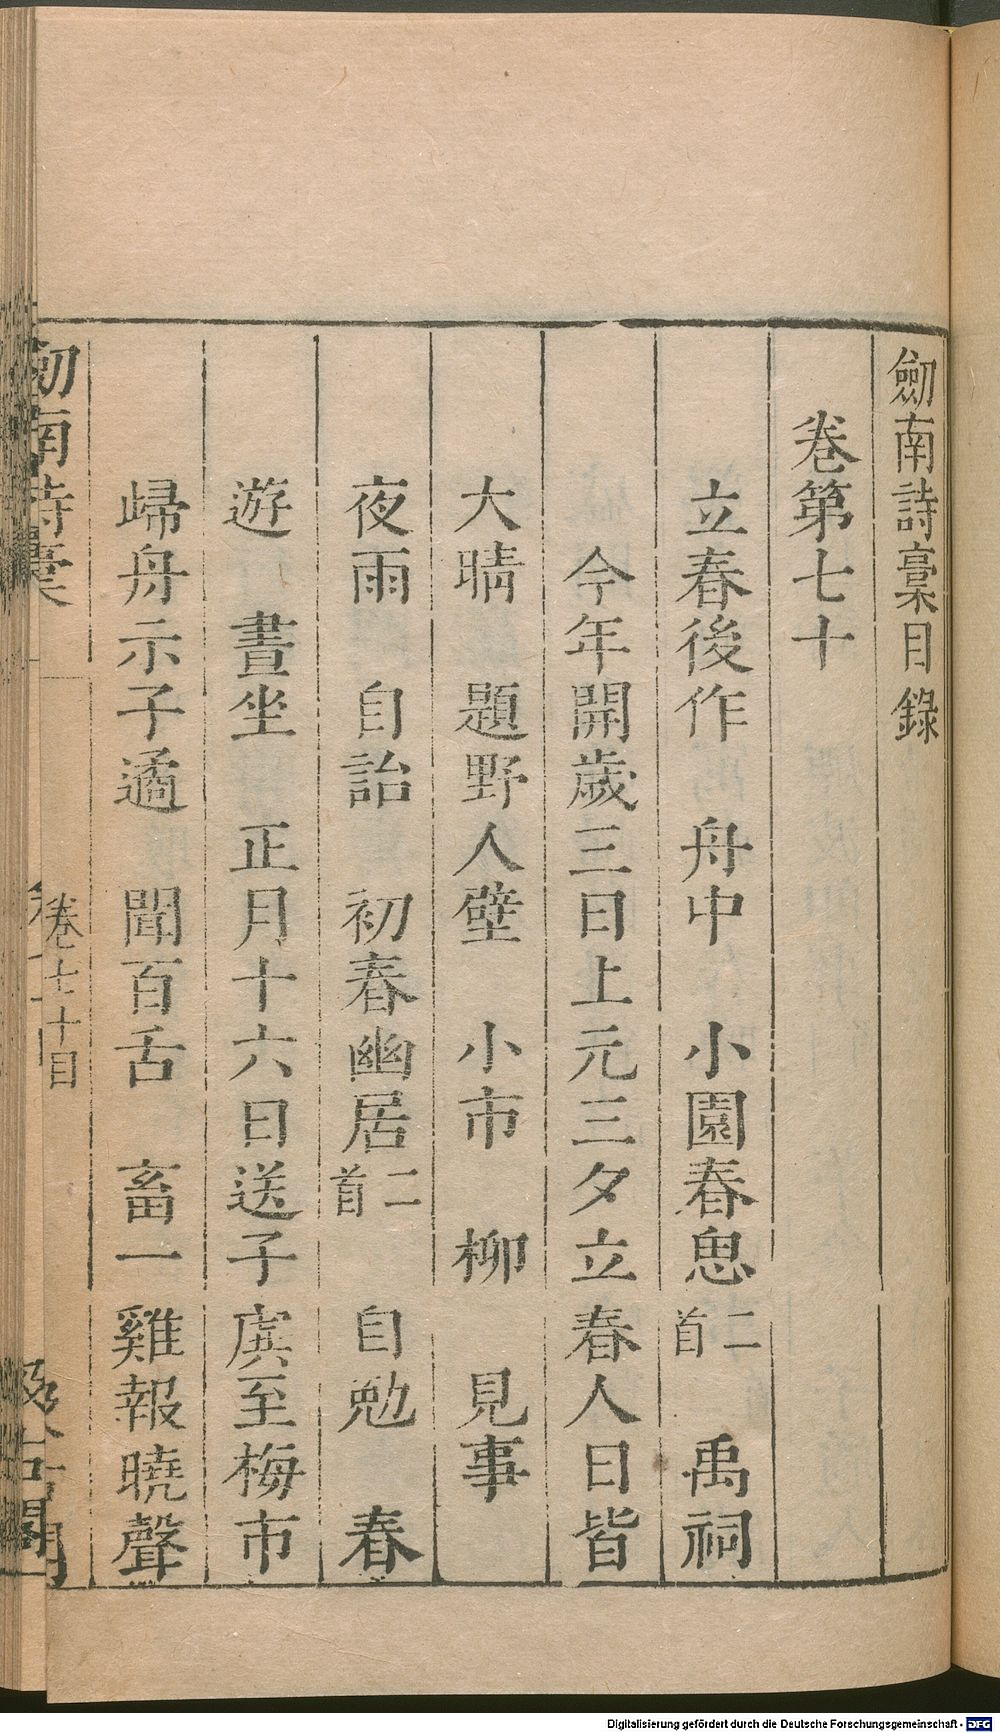 劒南詩稾目錄
卷第七十
立春後作　舟中　小園春思二首　禹祠
今年開歲三日上元三夕立春人日皆
大晴　題野人壁　小市　柳　見事
夜雨　自詒　初春幽居二首　自勉　春
遊　晝坐　正月十六日送子虡至梅市
歸舟示子遹　聞百舌　畜一雞報曉聲
劒南詩稾
卷七十目
Digitalisierung gefördert durch die Deutsche Forschungsgemeinschaft - DFG